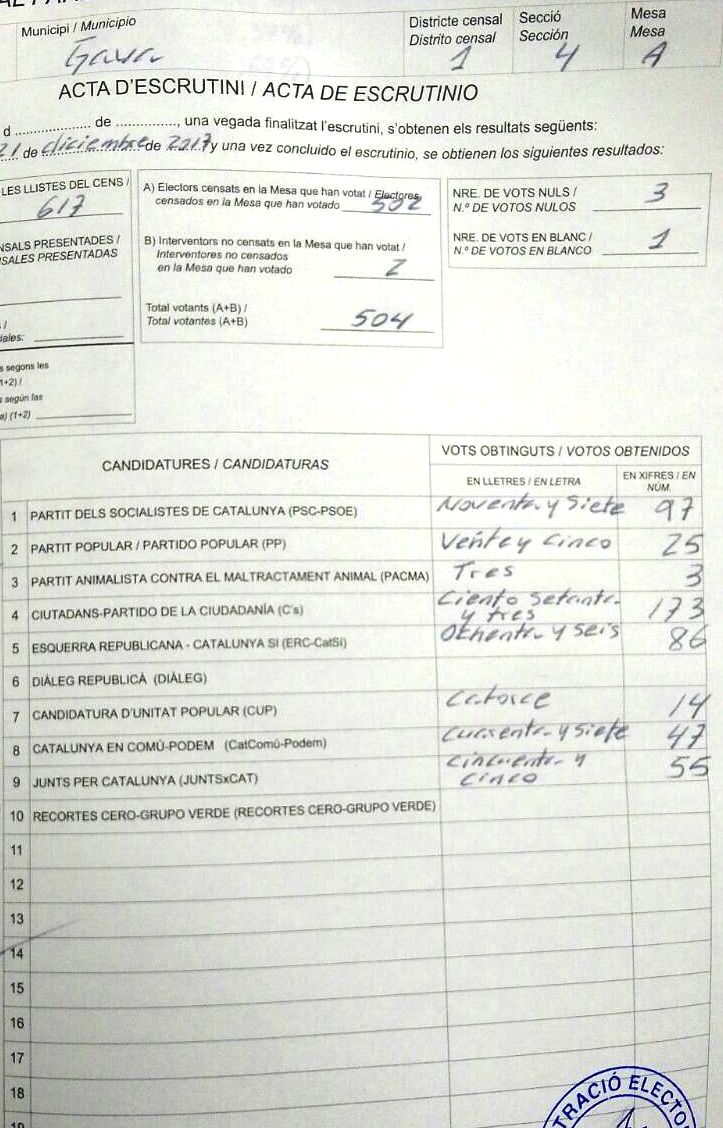 Municipi / Municipio
Gava
Districte censal
Distrito censal
1
Secció
Sección
4
Mesa
Mesa
A
ACTA D'ESCRUTINI / ACTA DE ESCRUTINIO
d .................. de ..............., una vegada finalitzat l'escrutini, s'obtenen els resultats següents:
21 de diciembre de 2017 y una vez concluido el escrutinio, se obtienen los siguientes resultados:
LES LLISTES DEL CENS /
617
NSALS PRESENTADES /
SALES PRESENTADAS
iales:
s segons les
1+2) /
s según las
a) (1+2)
A) Electors censats en la Mesa que han votat / Electores
censados en la Mesa que han votado 502
B) Interventors no censats en la Mesa que han votat /
Interventores no censados
en la Mesa que han votado 2
Total votants (A+B) /
Total votantes (A+B) 504
NRE. DE VOTS NULS /
N.º DE VOTOS NULOS 3
NRE. DE VOTS EN BLANC /
N.º DE VOTOS EN BLANCO 1
CANDIDATURES / CANDIDATURAS
VOTS OBTINGUTS / VOTOS OBTENIDOS
EN LLETRES / EN LETRA
EN XIFRES / EN
NÚM.
1 PARTIT DELS SOCIALISTES DE CATALUNYA (PSC-PSOE) Noventa y Siete 97
2 PARTIT POPULAR / PARTIDO POPULAR (PP) Veinte y Cinco 25
3 PARTIT ANIMALISTA CONTRA EL MALTRACTAMENT ANIMAL (PACMA) Tres 3
4 CIUTADANS-PARTIDO DE LA CIUDADANÍA (C's) Ciento Setenta y tres 173
5 ESQUERRA REPUBLICANA - CATALUNYA SI (ERC-CatSí) Ochenta y Seis 86
6 DIÀLEG REPUBLICÀ (DIÀLEG)
7 CANDIDATURA D'UNITAT POPULAR (CUP) Catorce 14
8 CATALUNYA EN COMÚ-PODEM (CatComú-Podem) Cuarenta y Siete 47
9 JUNTS PER CATALUNYA (JUNTSxCAT) Cincuenta y Cinco 55
10 RECORTES CERO-GRUPO VERDE (RECORTES CERO-GRUPO VERDE)
11
12
13
14
15
16
17
18
19
TRACIÓ ELECTO